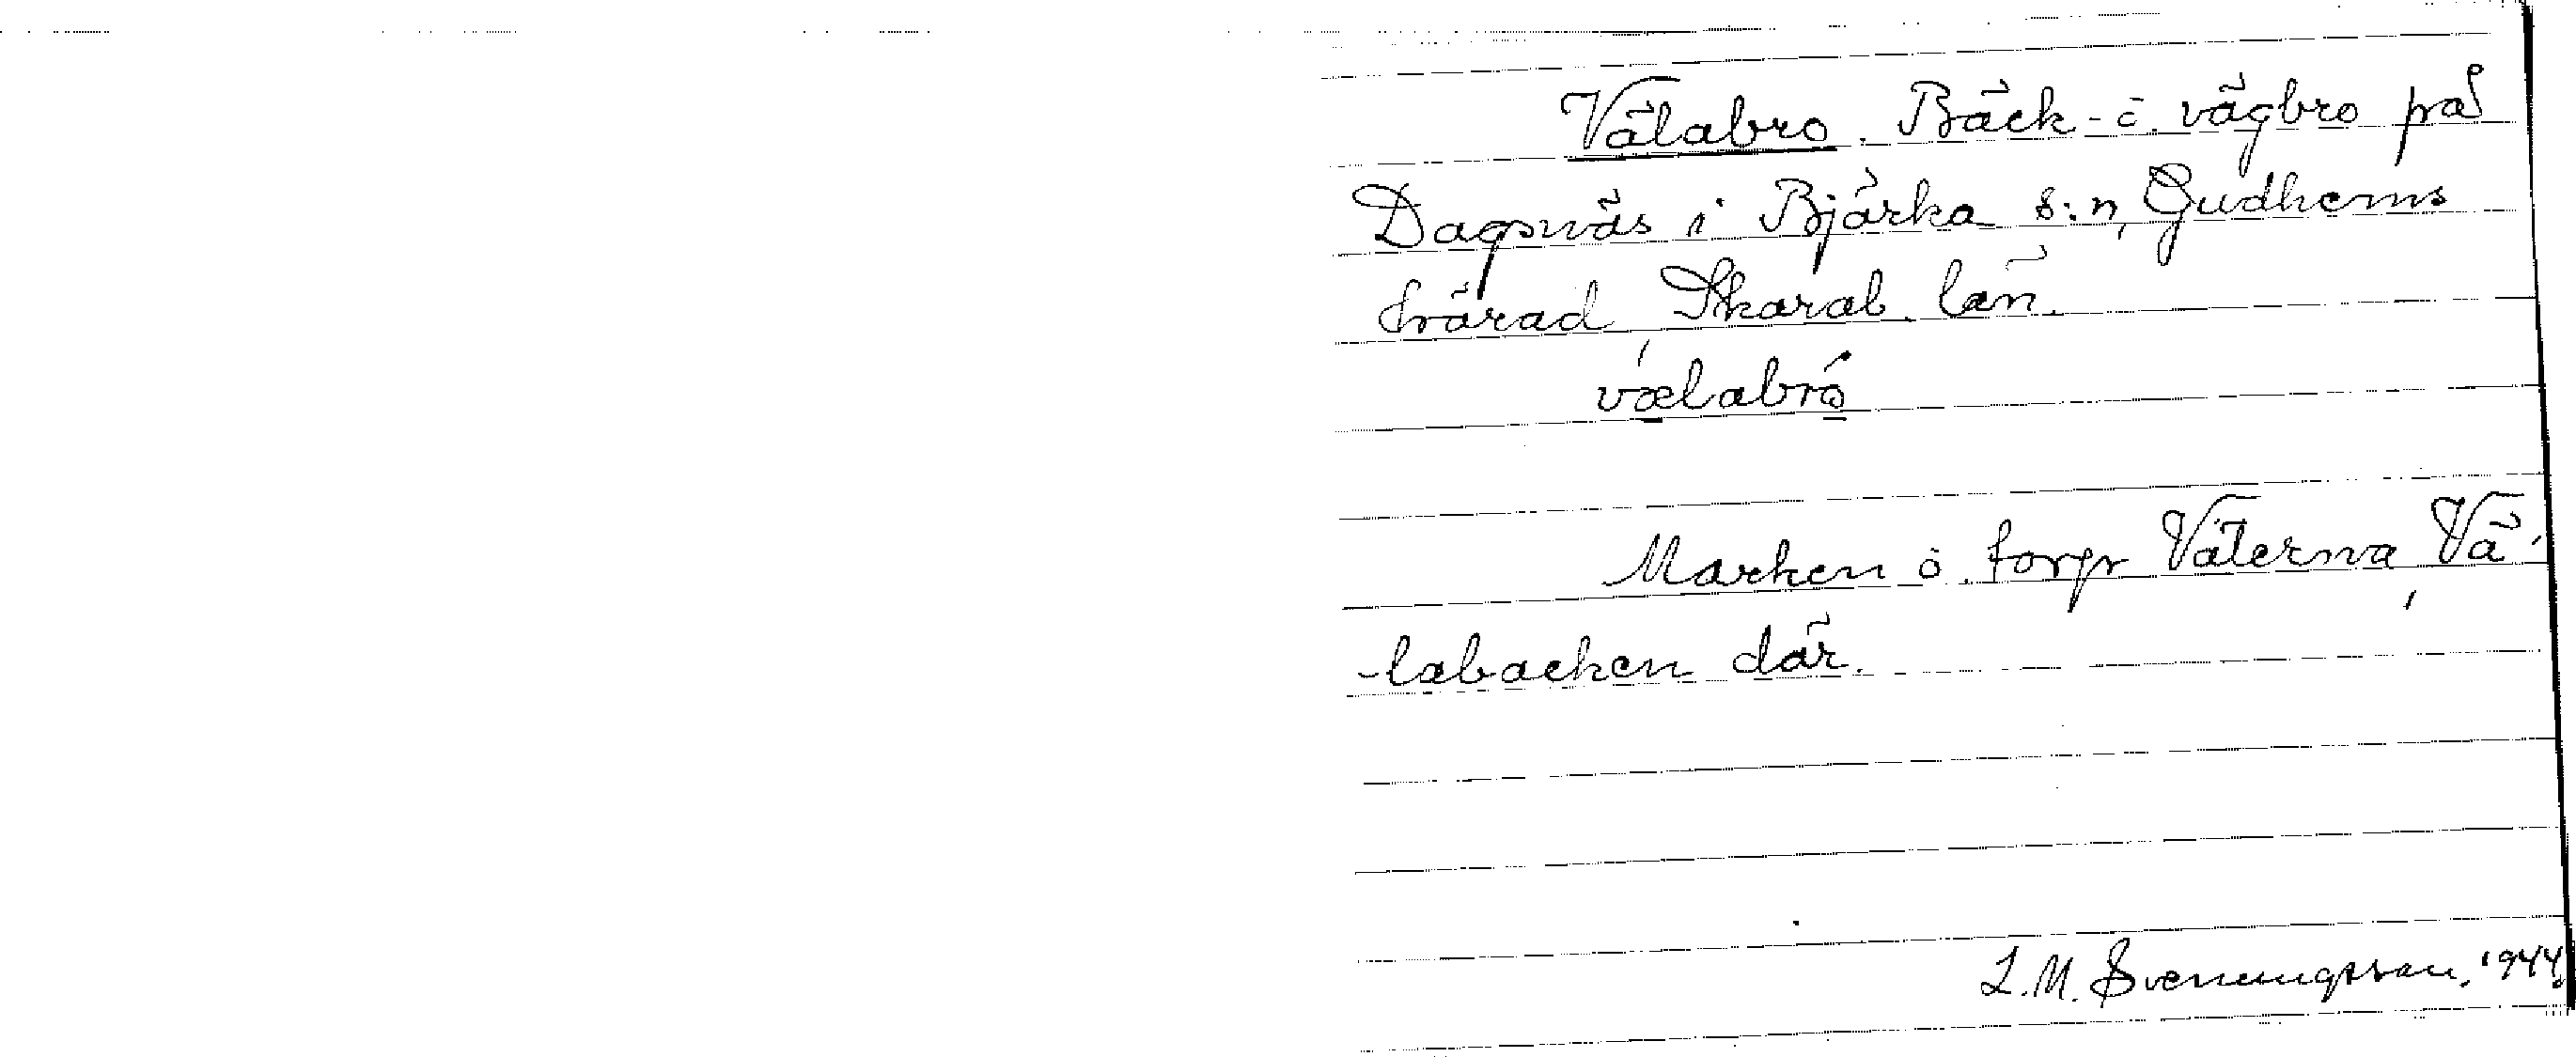 Välabro. Bäck- o. vägbro på
Dagsnäs i Bjärka s:n, Gudhems
härad, Skarab. län.
vælabró
Marken o. torpr Välerna, Vä-
-labacken där.
L.M. Svenungsson, 1944